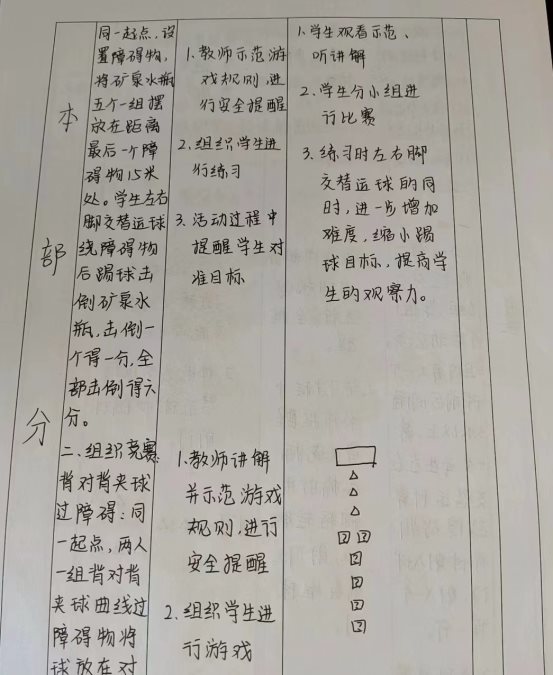 本
部
分
同一起点,设
置障碍物,
将矿泉水瓶
五个一组摆
放在距离
最后一个障
碍物15米
处。学生左右
脚交替运球
绕障碍物
后踢球击
倒矿泉水
瓶,击倒一
个得一分,全
部击倒得六
分。
二、组织竞赛
背对背夹球
过障碍:同
一起点,两人
一组背对背
夹球曲线过
障碍物将
球放在对
1.教师示范游
戏规则,进
行安全提醒
2.组织学生进
行练习
3.活动过程中
提醒学生对
准目标
1.教师讲解
并示范游戏
规则,进行
安全提醒
2.组织学生进
行游戏
1.学生观看示范、
听讲解
2.学生分小组进
行比赛
3.练习时左右脚
交替运球的同
时,进一步增加
难度,缩小踢
球目标,提高学
生的观察力。